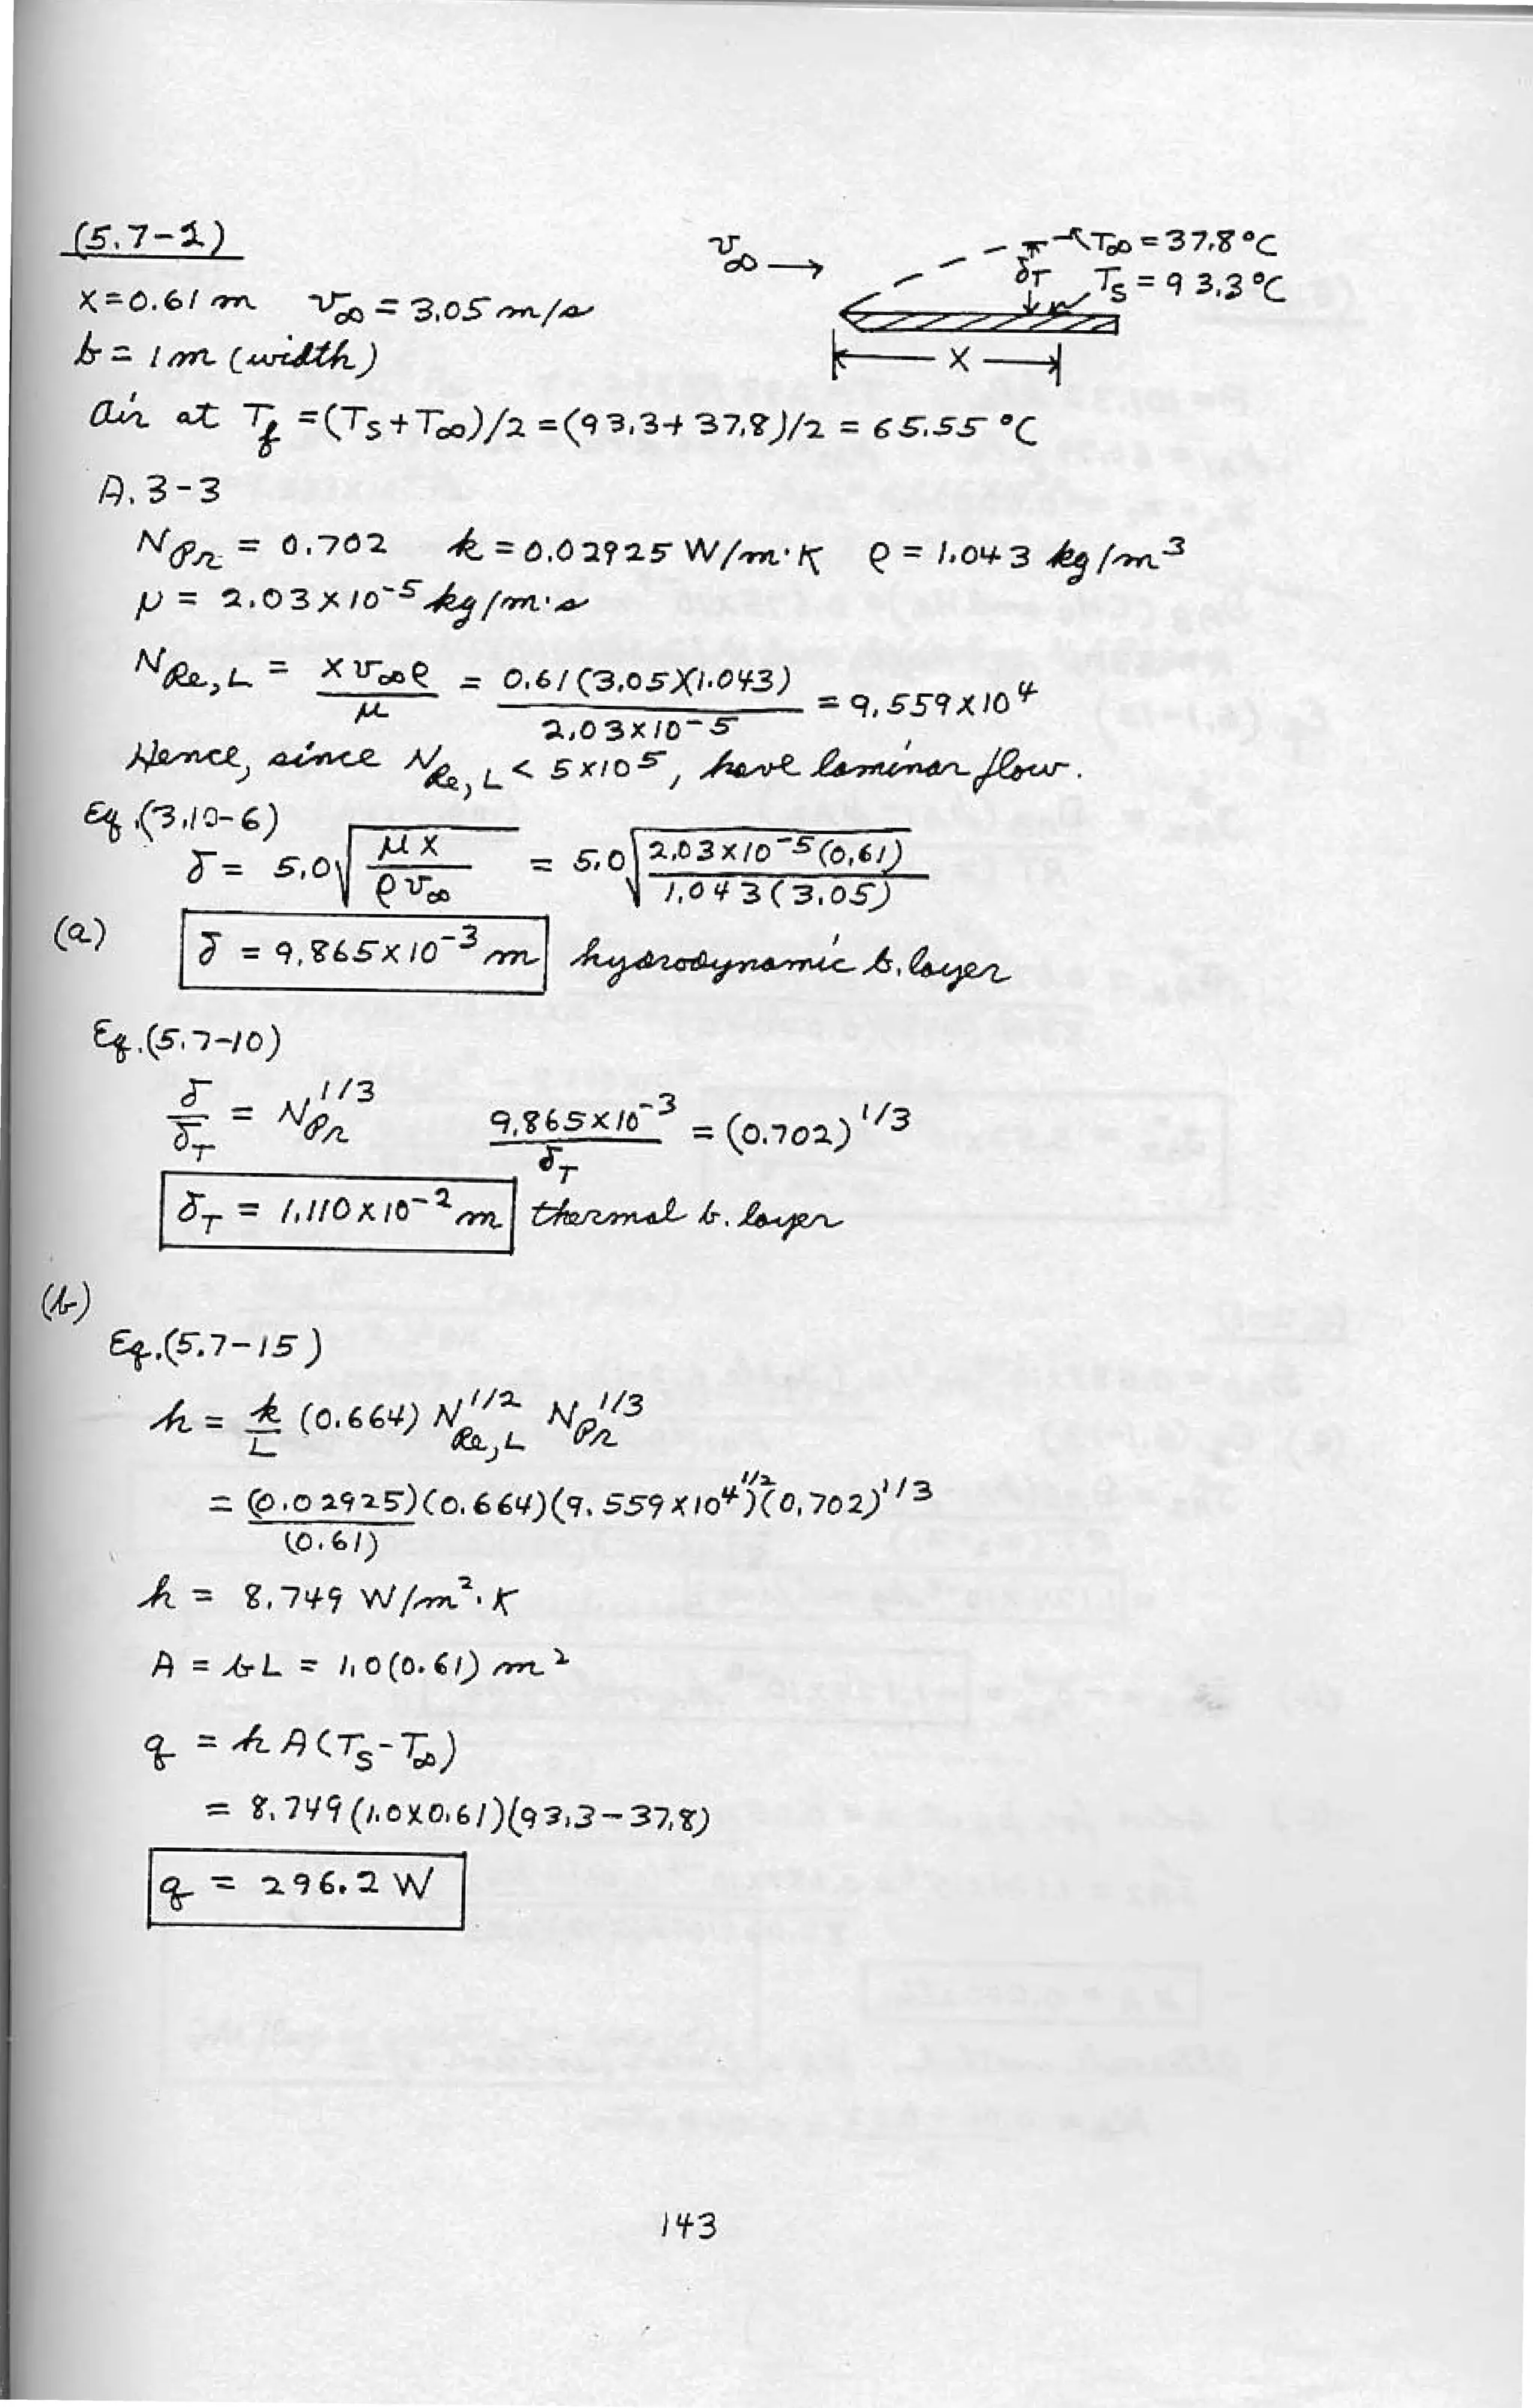 (5.7-2)
v∞ → T∞ = 37.8 °C
δT Ts = 93.3 °C
x = 0.61 m v∞ = 3.05 m/s
b = 1 m (width)
x
air at Tf = (Ts + T∞)/2 = (93.3 + 37.8)/2 = 65.55 °C
A.3-3
NPr = 0.702 k = 0.02925 W/m·K ρ = 1.043 kg/m³
μ = 2.03 x 10⁻⁵ kg/m·s
NRe,L = x v∞ ρ / μ = 0.61(3.05)(1.043) / 2.03 x 10⁻⁵ = 9.559 x 10⁴
Hence, since NRe,L < 5 x 10⁵, have laminar flow.
Eq.(3.10-6)
δ = 5.0 √(μ x / ρ v∞) = 5.0 √(2.03 x 10⁻⁵(0.61) / 1.043(3.05))
(a) δ = 9.865 x 10⁻³ m hydrodynamic b. layer
Eq.(5.7-10)
δ/δT = NPr^1/3 9.865 x 10⁻³ / δT = (0.702)^1/3
δT = 1.110 x 10⁻² m thermal b. layer
(b)
Eq.(5.7-15)
h = k/L (0.664) NRe,L^1/2 NPr^1/3
= (0.02925)/(0.61) (0.664)(9.559 x 10⁴)^1/2 (0.702)^1/3
h = 8.749 W/m²·K
A = bL = 1.0(0.61) m²
q = h A (Ts - T∞)
= 8.749 (1.0 x 0.61)(93.3 - 37.8)
q = 296.2 W
143